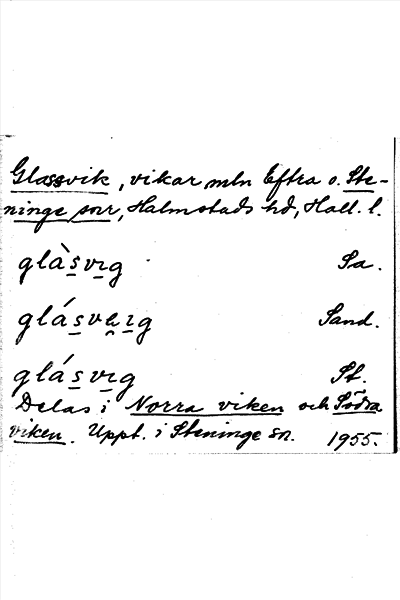 Glassvik, vikar mln Eftra o. Ste-
ninge snr, Halmstads hd, Hall. l.
glàs̱vi̱g Sa.
glás̱va̱i̱g Sand.
glás̱vi̱g St.
Delas i Norra viken och Södra
viken. Uppt. i Steninge sn. 1955.